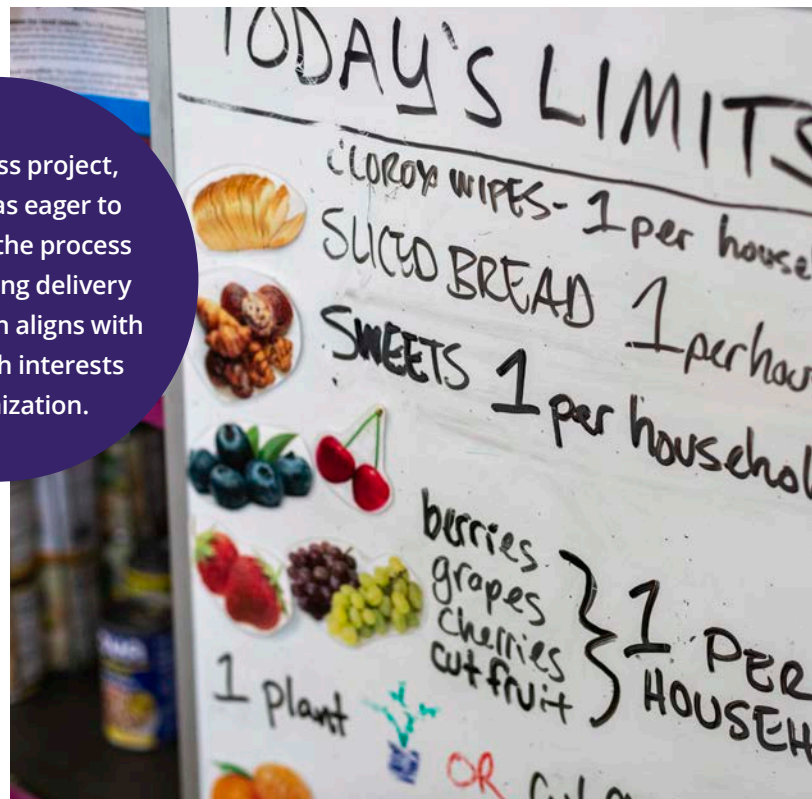 ss project,
as eager to
the process
ing delivery
n aligns with
h interests
ization.
TODAY'S LIMITS
CLOROX WIPES - 1 per house
SLICED BREAD 1 per hou
SWEETS 1 per househol
berries
grapes
cherries
cut fruit
1 PER
HOUSEH
1 plant
OR